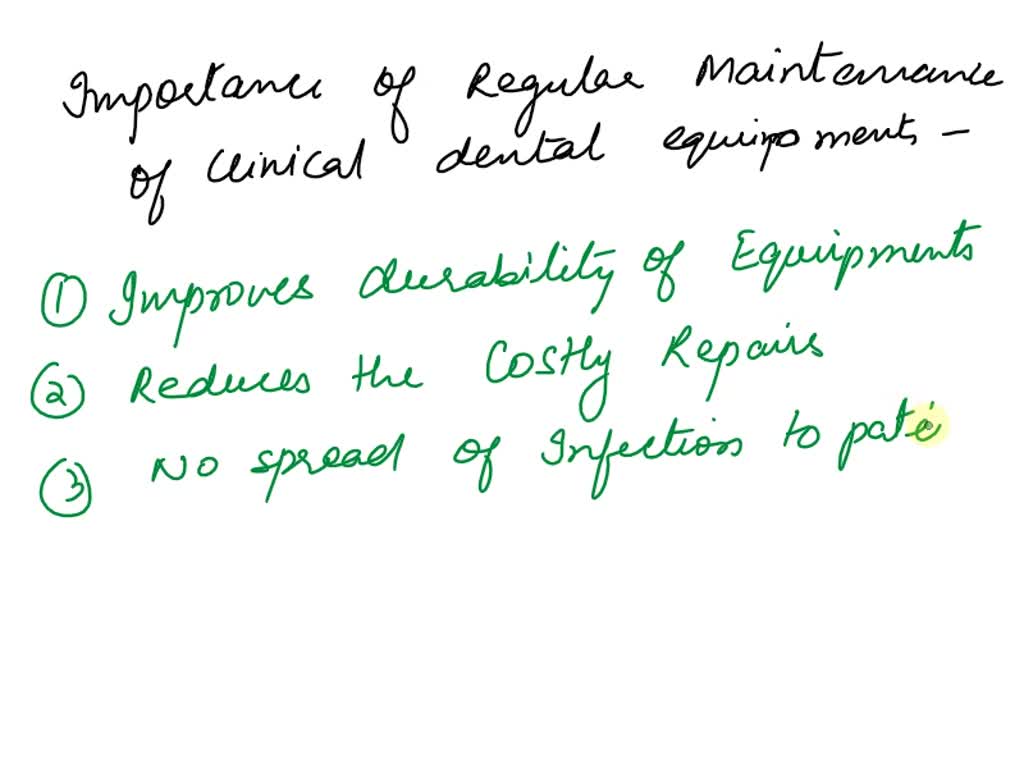 Importance of Regular Maintenance
of clinical dental equipments –
① Improves durability of Equipments
② Reduces the Costly Repairs
③ No spread of Infection to patie